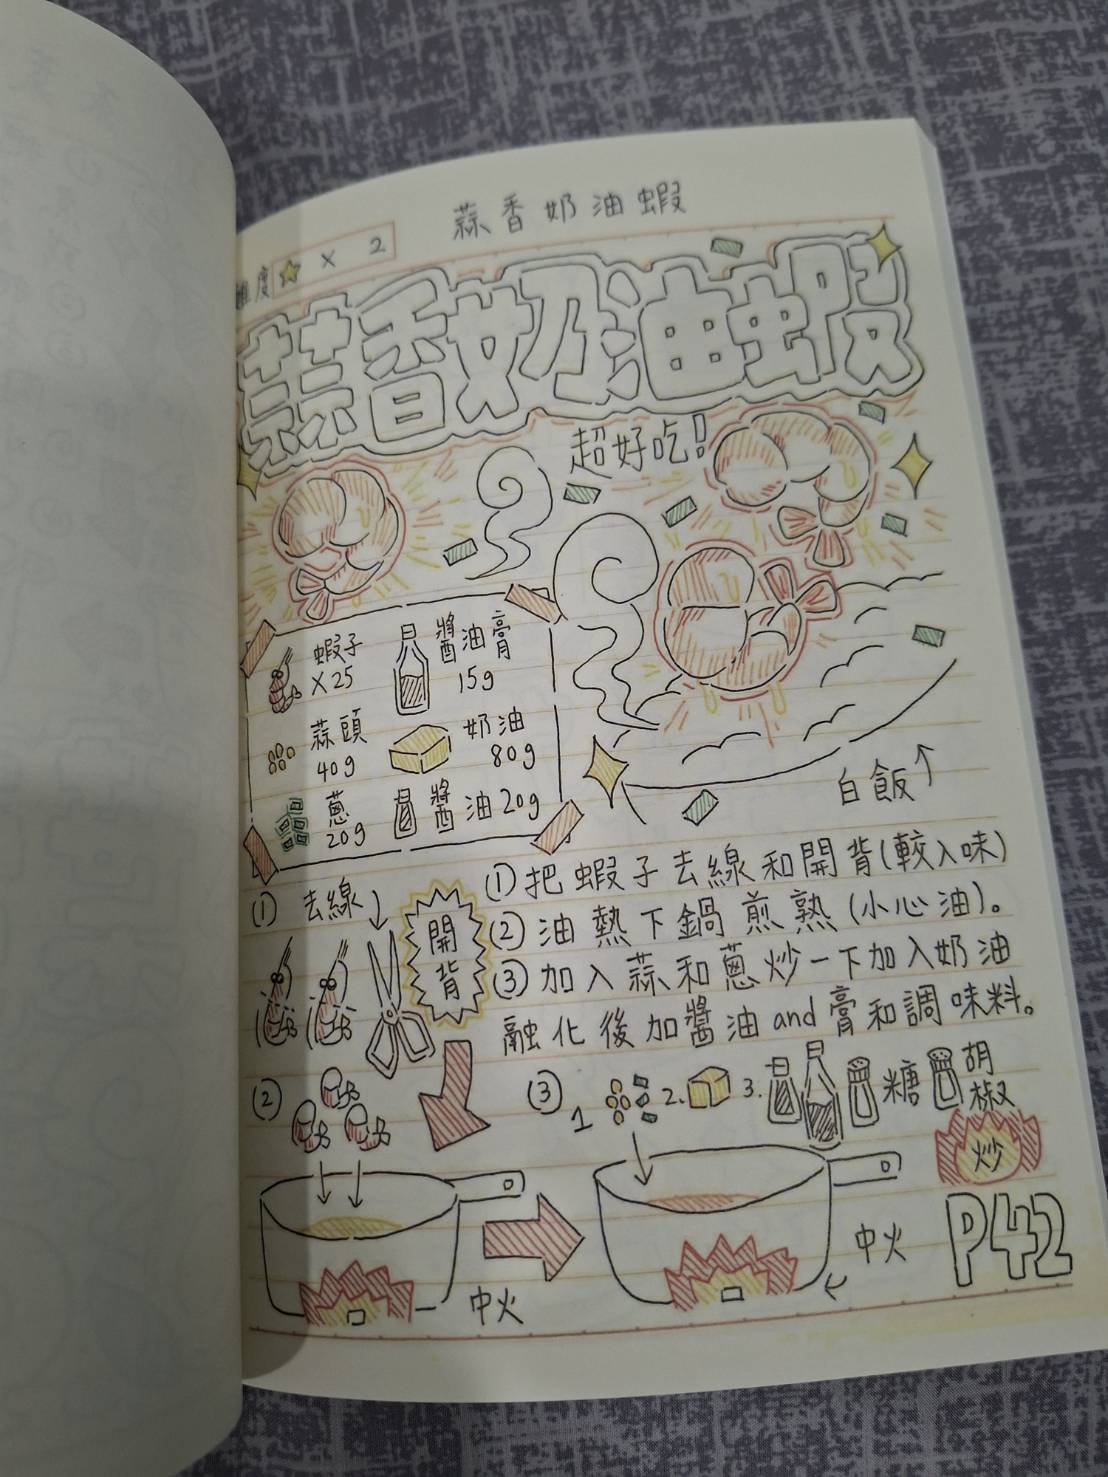 蒜香奶油蝦
難度☆ × 2
蒜香奶油蝦
超好吃!
蝦子
×25
醬油膏
15g
蒜頭
40g
奶油
80g
蔥
20g
醬油20g
白飯↑
① 去線
開背
①把蝦子去線和開背(較入味)
②油熱下鍋煎熟(小心油)。
③加入蒜和蔥炒一下加入奶油
融化後加醬油and膏和調味料。
②
中火
③
1
2.
3.
糖
胡椒
炒
中火
P42